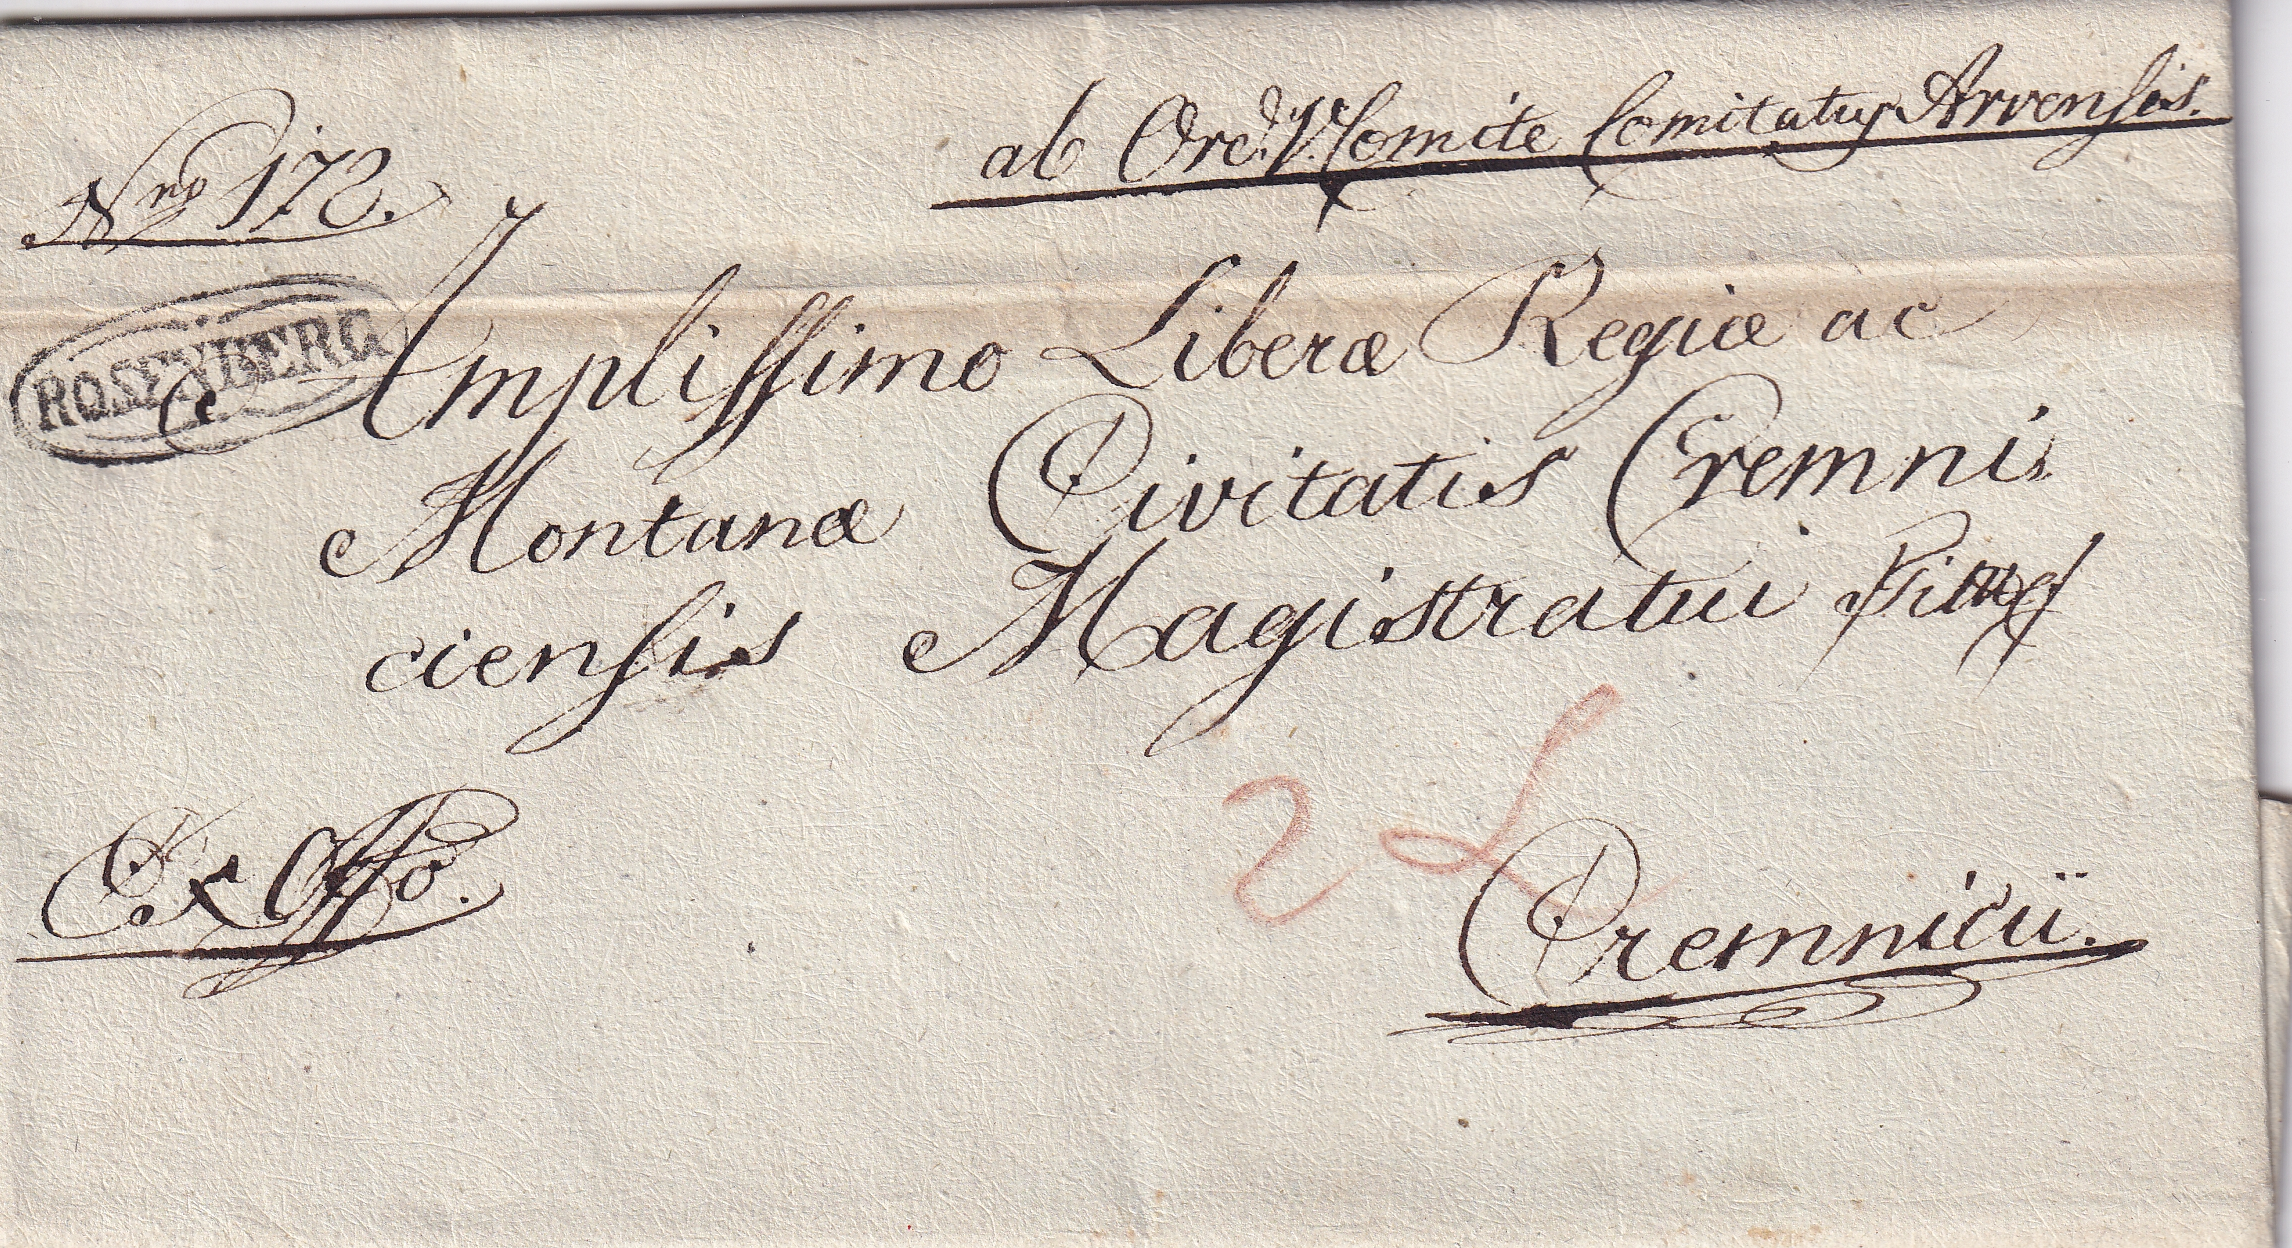 Nro 172.
ab Ord. V. Comite Comitatus Arvensis.
ROSENBERG
Amplissimo Liberæ Regiæ ac
Montanæ Civitatis Cremni,
ciensis Magistratui
Ex Offo.
2 L
Cremnicii.